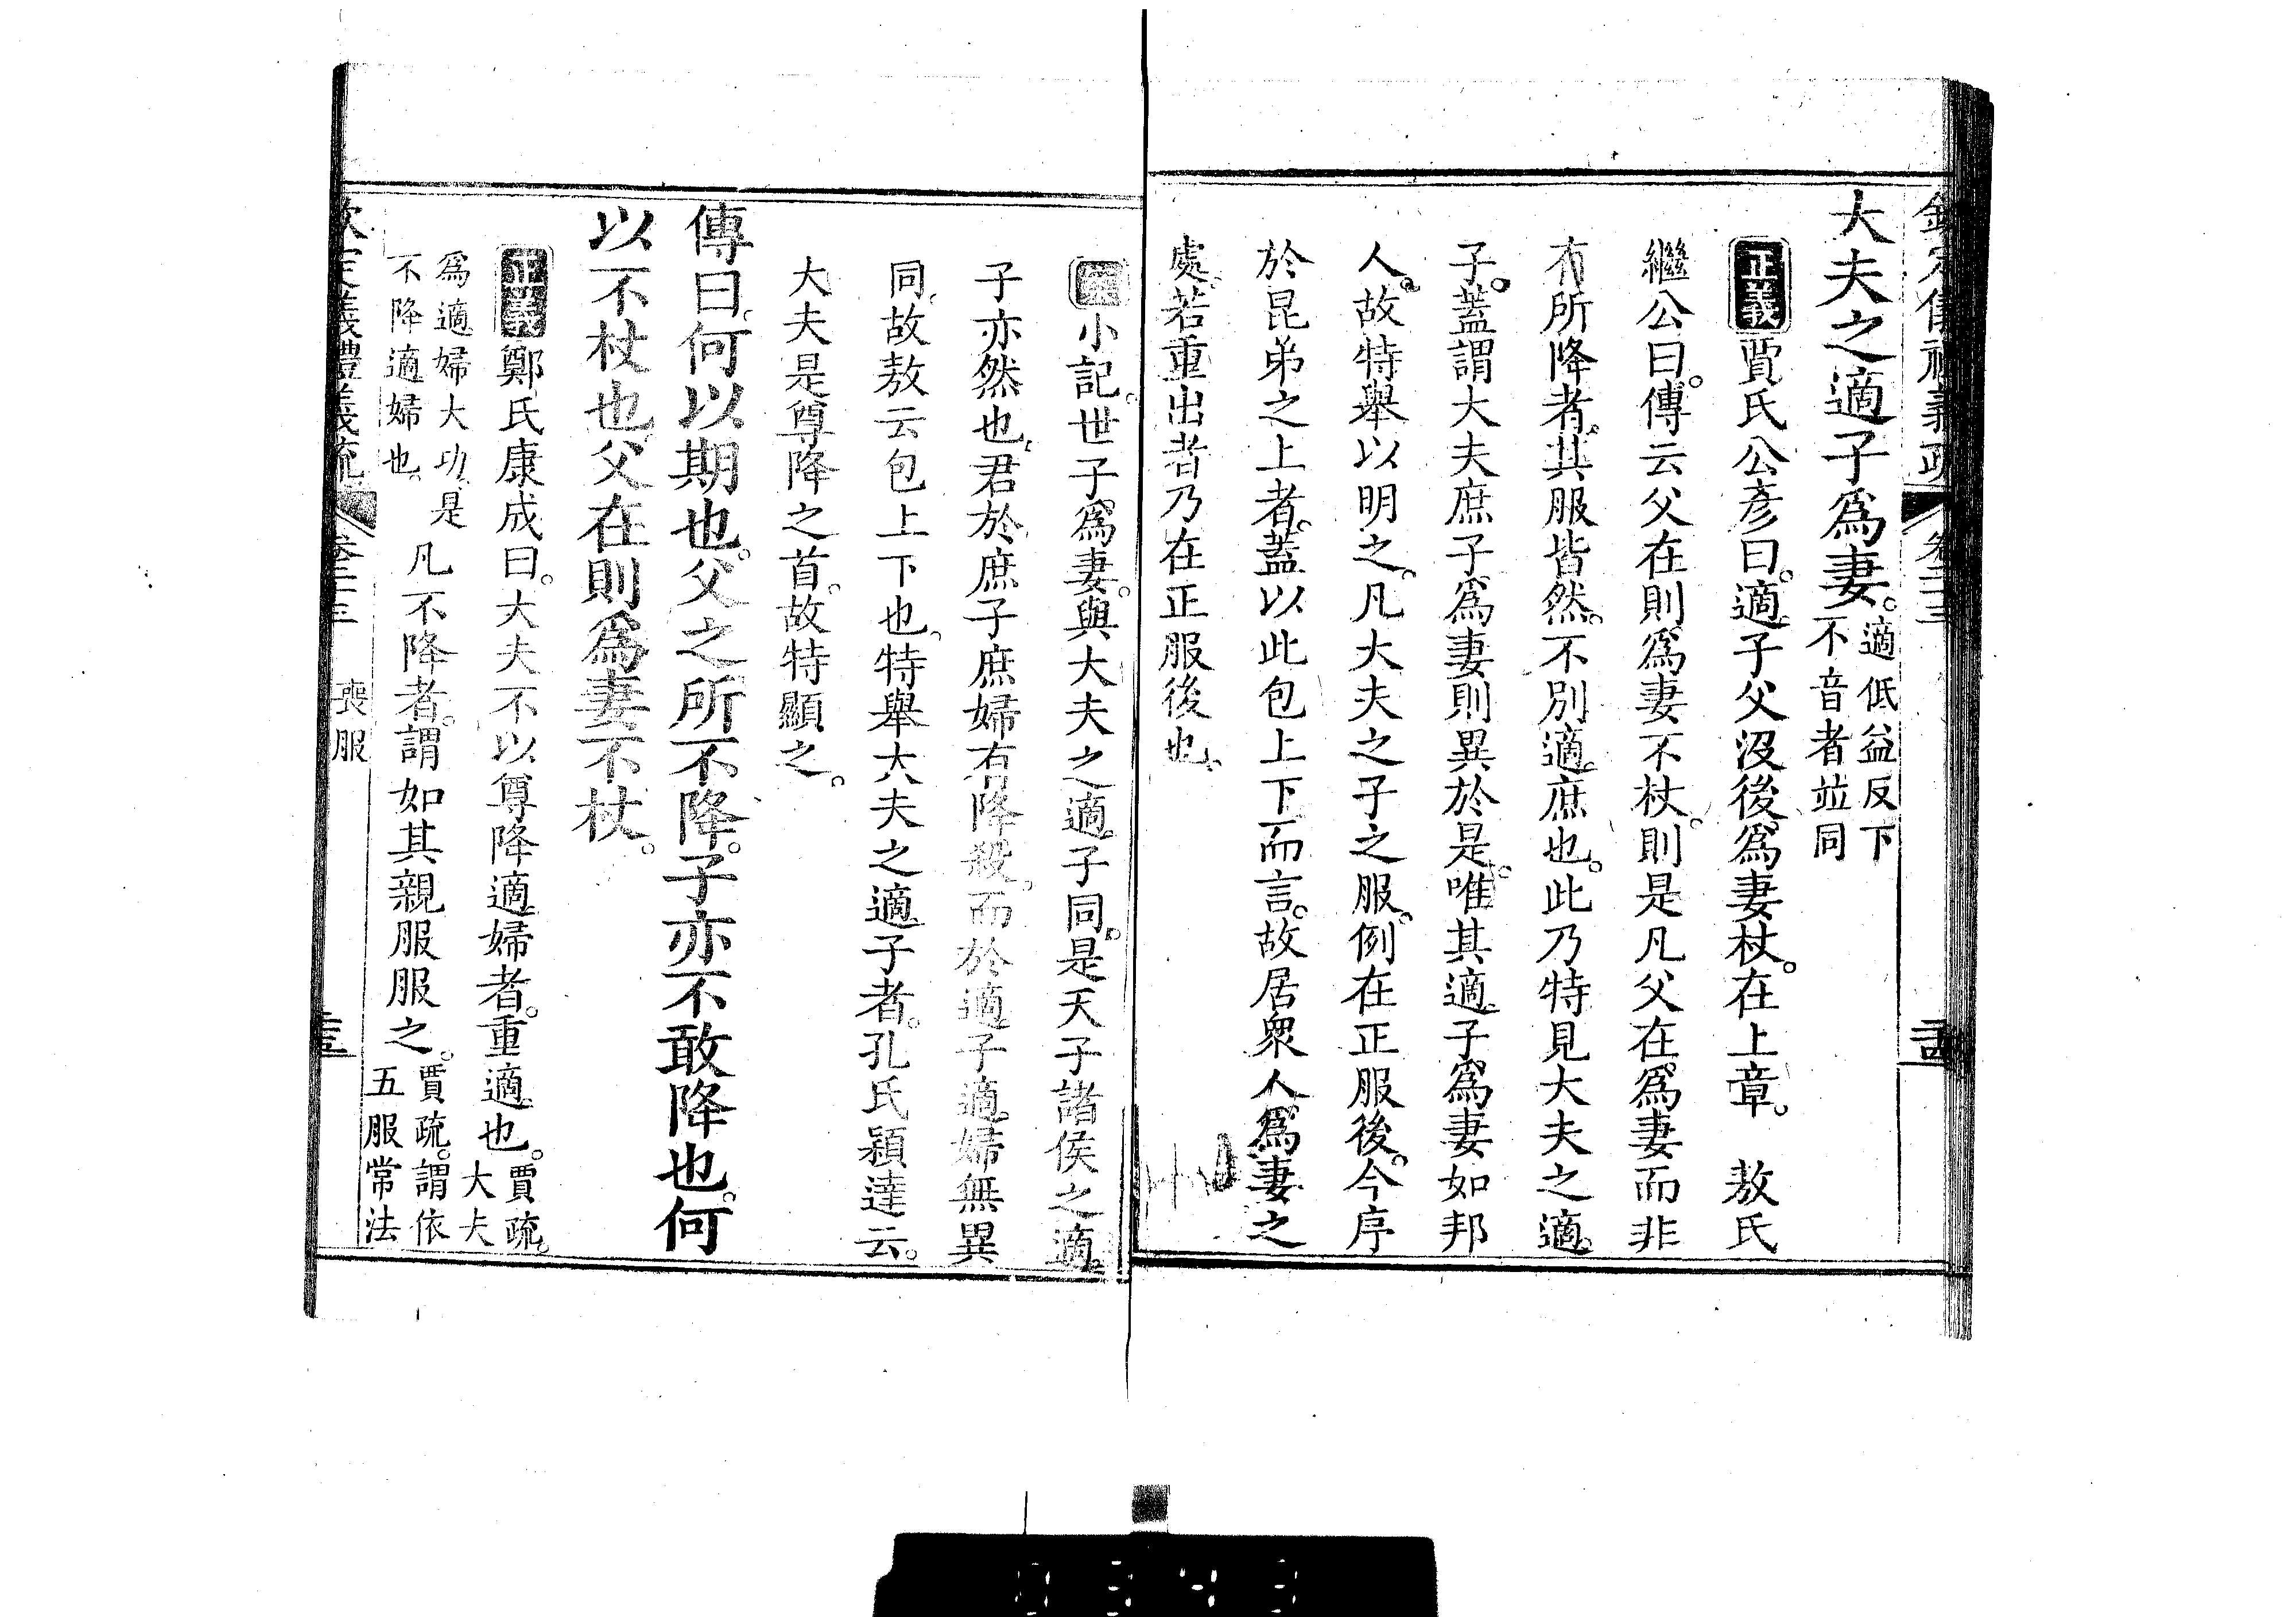 大夫之適子爲妻。適低益反下不音者竝同
正義賈氏公彥曰。適子父沒後爲妻杖。在上章。 敖氏
繼公曰。傳云父在則爲妻不杖。則是凡父在爲妻而非
有所降者。其服皆然。不別適庶也。此乃特見大夫之適
子。蓋謂大夫庶子爲妻則異於是。唯其適子爲妻如邦
人。故特舉以明之。凡大夫之子之服。例在正服後。今序
於昆弟之上者。蓋以此包上下而言。故居衆人爲妻之
處。若重出者乃在正服後也。
小記。世子爲妻。與大夫之適子同。是天子諸侯之適
子亦然也。君於庶子庶婦有降殺。而於適子適婦無異
同。故敖云包上下也。特舉大夫之適子者。孔氏穎達云。
大夫是尊降之首。故特顯之。
傳曰。何以期也。父之所不降。子亦不敢降也。何
以不杖也。父在則爲妻不杖。
正義鄭氏康成曰。大夫不以尊降適婦者。重適也。賈疏。大夫
爲適婦大功。是不降適婦也。凡不降者。謂如其親服服之。賈疏。謂依五服常法
喪服